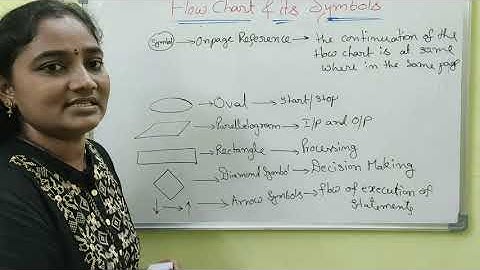 Flow Chart & its Symbols
Symbol → Onpage Reference → the continuation of the
flow chart is at some
where in the same page
→ Oval → Start/Stop
→ Parallelogram → I/P and O/P
→ Rectangle → Processing
→ Diamond Symbol → Decision Making
→ Arrow Symbols → flow of execution of
statements